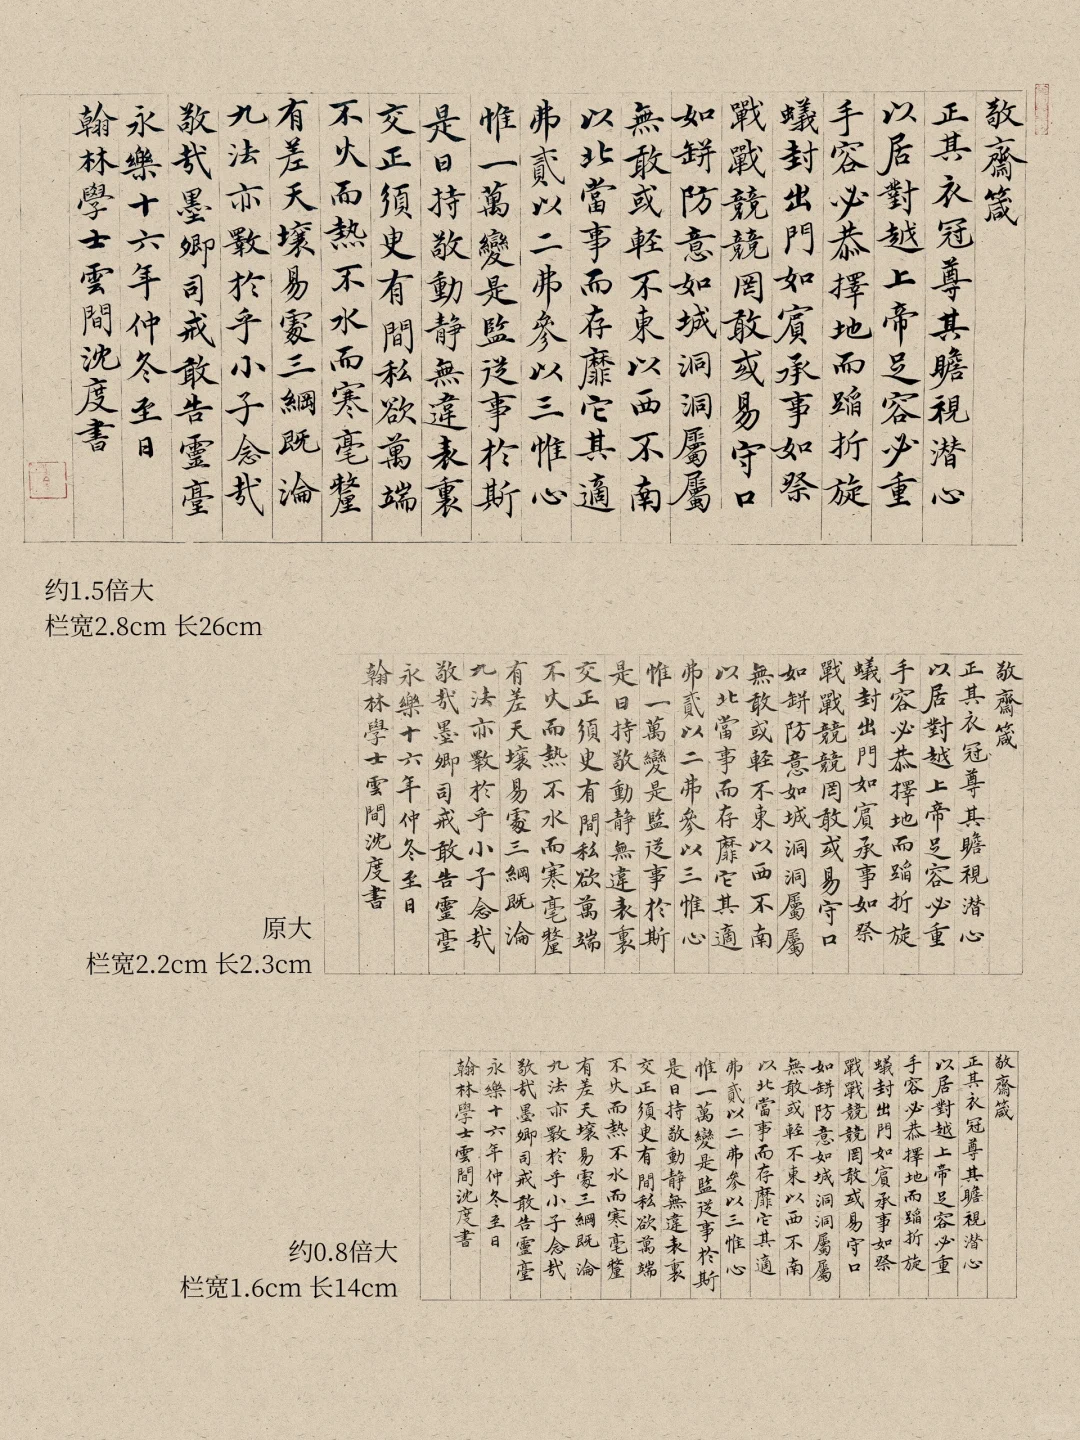 敬齋箴
正其衣冠尊其瞻視潛心
以居對越上帝足容必重
手容必恭擇地而蹈折旋
蟻封出門如賓承事如祭
戰戰兢兢罔敢或易守口
如缾防意如城洞洞屬屬
無敢或輕不東以西不南
以北當事而存靡它其適
弗貳以二弗參以三惟心
惟一萬變是監從事於斯
是曰持敬動静無違表裏
交正須臾有間私欲萬端
不火而熱不水而寒毫釐
有差天壤易處三綱既淪
九法亦斁於乎小子念哉
敬哉墨卿司戒敢告靈臺
永樂十六年仲冬至日
翰林學士雲間沈度書
约1.5倍大
栏宽2.8cm 长26cm
敬齋箴
正其衣冠尊其瞻視潛心
以居對越上帝足容必重
手容必恭擇地而蹈折旋
蟻封出門如賓承事如祭
戰戰兢兢罔敢或易守口
如缾防意如城洞洞屬屬
無敢或輕不東以西不南
以北當事而存靡它其適
弗貳以二弗參以三惟心
惟一萬變是監從事於斯
是曰持敬動静無違表裏
交正須臾有間私欲萬端
不火而熱不水而寒毫釐
有差天壤易處三綱既淪
九法亦斁於乎小子念哉
敬哉墨卿司戒敢告靈臺
永樂十六年仲冬至日
翰林學士雲間沈度書
原大
栏宽2.2cm 长2.3cm
敬齋箴
正其衣冠尊其瞻視潛心
以居對越上帝足容必重
手容必恭擇地而蹈折旋
蟻封出門如賓承事如祭
戰戰兢兢罔敢或易守口
如缾防意如城洞洞屬屬
無敢或輕不東以西不南
以北當事而存靡它其適
弗貳以二弗參以三惟心
惟一萬變是監從事於斯
是曰持敬動静無違表裏
交正須臾有間私欲萬端
不火而熱不水而寒毫釐
有差天壤易處三綱既淪
九法亦斁於乎小子念哉
敬哉墨卿司戒敢告靈臺
永樂十六年仲冬至日
翰林學士雲間沈度書
约0.8倍大
栏宽1.6cm 长14cm